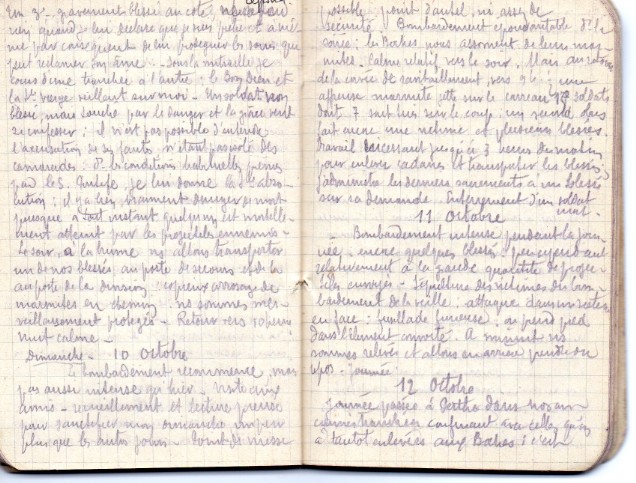 Un 3e gravement blessé au côté
rien quand je leur déclare que je suis prêtre et à mê-
me par conséquent de leur prodiguer les soins que
peut réclamer leur âme - Sous la mitraille je
cours d'une tranchée à l'autre : le Bon Dieu et
la Ste Vierge veillant sur moi - Un soldat non
blessé, mais touché par le danger et la grâce veut
se confesser ; il n'est pas possible d'entendre
l'accusation de ses fautes n'étant pas à portée des
camarades :
par le S. Pontife, je leur donne la Ste abso-
lution ; il y a très vraiment danger de mort
puisque à tout instant quelqu'un est mortelle-
ment atteint par les projectiles ennemis -
Le soir, à la brume ns allons transporter
un de nos blessés au poste de secours et de là
au poste de la division : copieux arrosage de
marmites en chemin ; ns sommes mer-
veilleusement protégés - Retour vers
nuit calme -
Dimanche - 10 Octobre
Le bombardement recommence, mais
pas aussi intense qu'hier - visite aux
amis - recueillement et lecture pieuse
pour sanctifier mon dimanche un peu
plus que les autres jours - Point de messe
possible, point d'autel, ni assez de
sécurité. Bombardement épouvantable de la
; les Boches nous assomment de leurs mar-
mites. Calme relatif vers le soir. Mais au
de la corvée de ravitaillement, vers 9h ; une
affreuse marmite jette sur le carreau 17 soldats
dont 7 sont tués sur le coup ; un second obus
fait encore une victime et plusieurs blessés.
Travail incessant jusqu'à 3 heures du matin
pour enlever cadavres et transporter les blessés ;
j'administre les derniers sacrements à un blessé
sur sa demande. Enterrement d'un soldat
11 Octobre
- Bombardement intense pendant la jour-
née, encore quelques blessés : peu cependant
relativement à la grande quantité de
. Sépulture des victimes du bom-
bardement de la veille : attaque dans un secteur
en face : fusillade furieuse, on perd pied
dans l'élément convoité. A minuit ns
sommes relevés et allons en arrière prendre du
repos - journée
12 Octobre
Journée passée à dans nos an-
ciennes tranchées confinant avec celles qu'on
a tantôt enlevées aux Boches : c'est